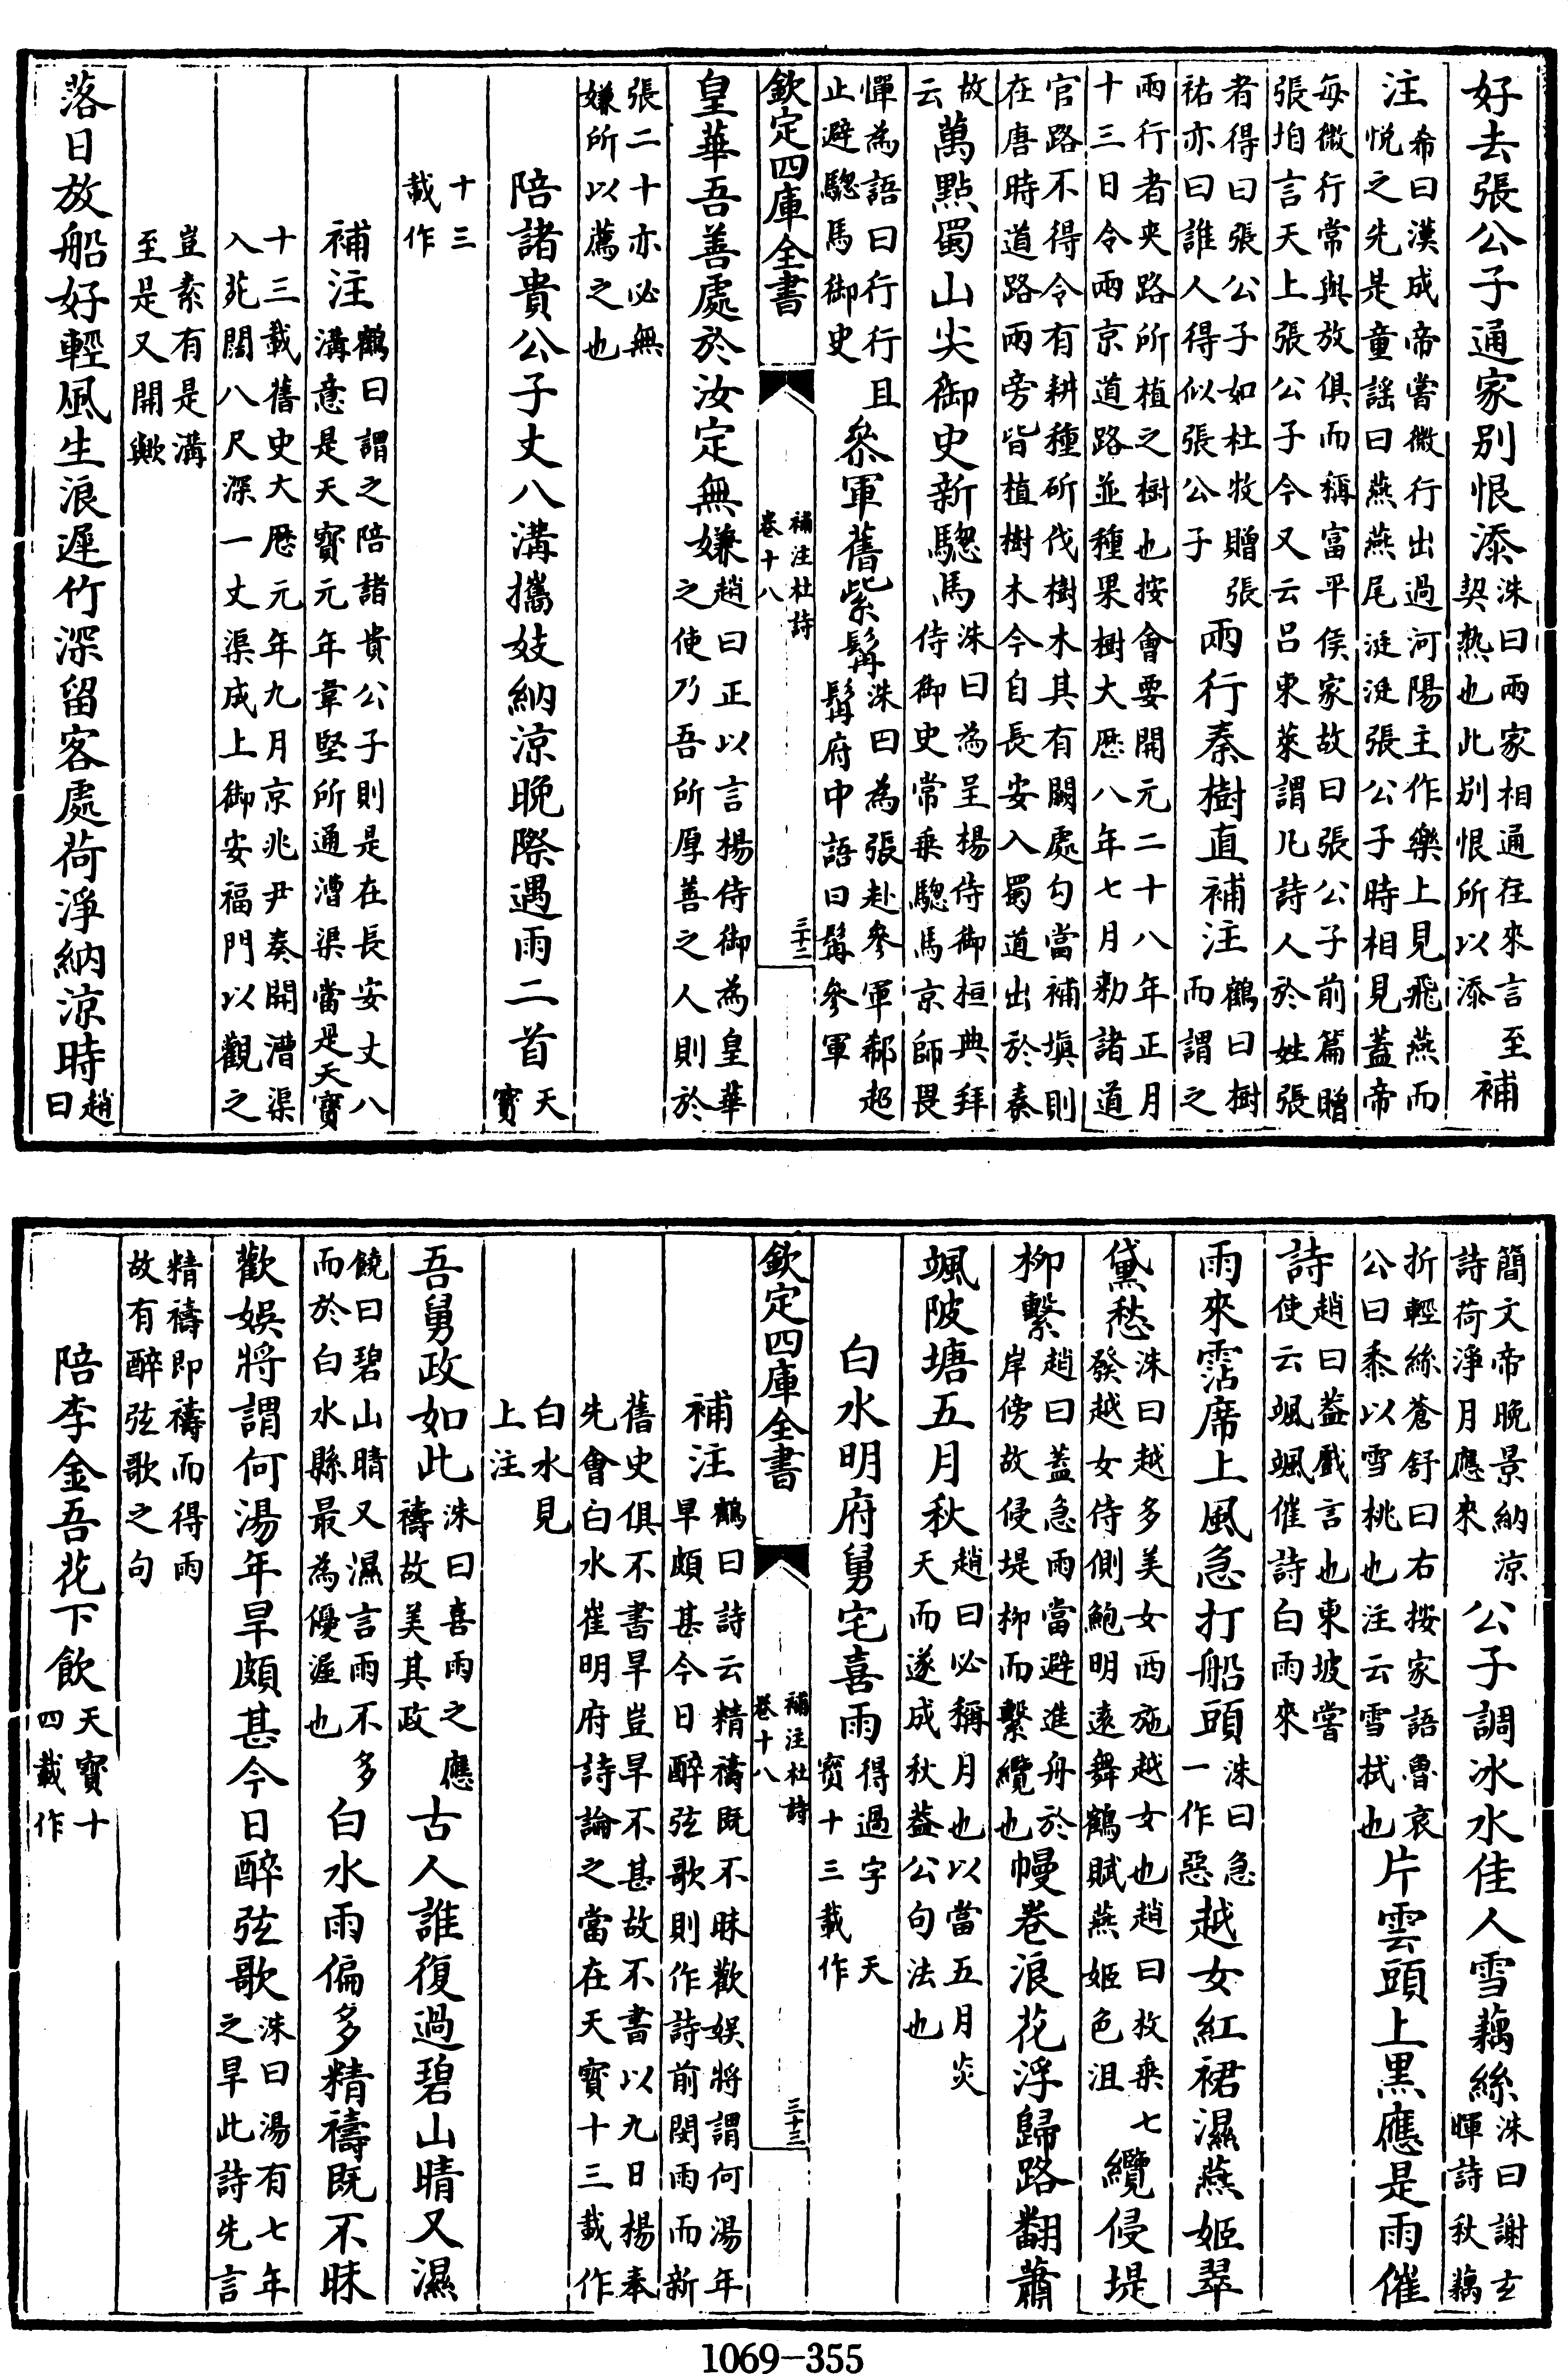 好去張公子通家別恨添洙曰兩家相通往來言至契熱也此別恨所以添補
注希曰漢成帝嘗微行出過河陽主作樂上見飛燕而悅之先是童謡曰燕燕尾涎涎張公子時相見蓋帝
每微行常與張放俱而稱富平侯家故曰張公子前篇贈張垍言天上張公子今又云呂東萊謂凡詩人於姓張
者得曰張公子如杜牧贈張祐亦曰誰人得似張公子兩行秦樹直補注鶴曰樹而謂之
兩行者夾路所植之樹也按會要開元二十八年正月十三日令兩京道路並種果樹大厯八年七月勅諸道
官路不得令有耕種斫伐樹木其有闕處勾當補塡則在唐時道路兩旁皆植樹木今自長安入蜀道出於秦
故云萬點蜀山尖御史新驄馬洙曰為呈楊侍御桓典拜侍御史常乗驄馬京師畏
憚為語曰行行且止避驄馬御史參軍舊紫髯洙曰為張赴參軍郗超髯府中語曰髯參軍
欽定四庫全書 補注杜詩 卷十八 三十二
皇華吾善處於汝定無嫌趙曰正以言楊侍御為皇華之使乃吾所厚善之人則於
張二十亦必無嫌所以薦之也
陪諸貴公子丈八溝攜妓納涼晚際遇雨二首天寳
十三載作
補注鶴曰謂之陪諸貴公子則是在長安丈八溝意是天寳元年韋堅所通漕渠當是天寳
十三載舊史大厯元年九月京兆尹奏開漕渠入苑闊八尺深一丈渠成上御安福門以觀之
豈素有是溝至是又開歟
落日放船好輕風生浪遲竹深留客處荷淨納涼時趙曰
簡文帝晚景納涼詩荷淨月應來公子調冰水佳人雪藕絲洙曰謝玄暉詩秋藕
折輕絲蒼舒曰右按家語魯哀公曰黍以雪桃也注云雪拭也片雲頭上黑應是雨催
詩趙曰蓋戲言也東坡嘗使云颯颯催詩白雨來
雨來霑席上風急打船頭洙曰急一作惡越女紅裙濕燕姬翠
黛愁洙曰越多美女西施越女也趙曰枚乗七發越女侍側鮑明遠舞鶴賦燕姬色沮纜侵堤
柳繫趙曰蓋急雨當避進舟於岸傍故侵堤柳而繫纜也幔卷浪花浮歸路翻蕭
颯陂塘五月秋趙曰必稱月也以當五月炎天而遂成秋蓋公句法也
白水明府舅宅喜雨得過字天寳十三載作
欽定四庫全書 補注杜詩 卷十八 三十三
補注鶴曰詩云精禱既不昧歡娱將謂何湯年旱頗甚今日醉弦歌則作詩前閔雨而新
舊史俱不書旱豈旱不甚故不書以九日楊奉先會白水崔明府詩論之當在天寳十三載作
白水見上注
吾舅政如此洙曰喜雨之應禱故美其政古人誰復過碧山晴又濕
饒曰碧山晴又濕言雨不多而於白水縣最為優渥也白水雨偏多精禱既不昧
歡娱將謂何湯年旱頗甚今日醉弦歌洙曰湯有七年之旱此詩先言
精禱即禱而得雨故有醉弦歌之句
陪李金吾花下飲天寳十四載作
1069-355